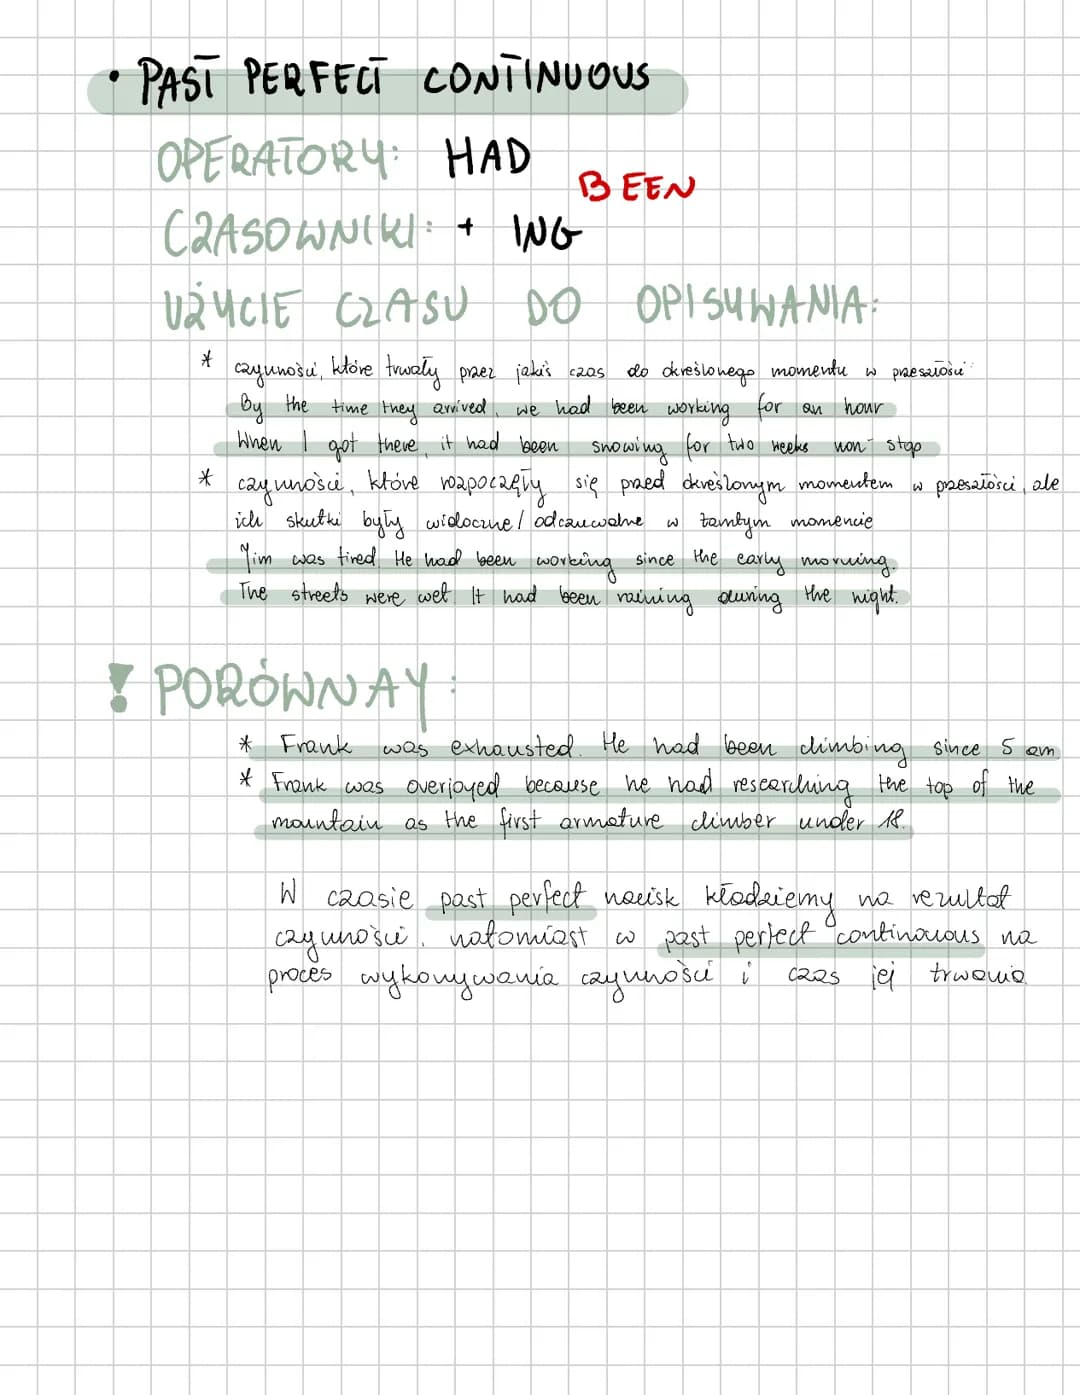 • PAST PERFECT CONTINUOUS
OPERATORY: HAD
BEEN
CZASOWNIKI: + ING
UŻYCIE CZASU DO OPISYWANIA:
* czynności, które trwały przez jakiś czas do określonego momentu w przeszłości:
By the time they arrived, we had been working for an hour
When I got there, it had been snowing for two weeks non-stop
* czynności, które rozpoczęły się przed określonym momentem w przeszłości, ale
ich skutki były widoczne/odczuwalne w tamtym momencie
Jim was tired. He had been working since the early morning.
The streets were wet. It had been raining during the night.
! PORÓWNAY:
* Frank was exhausted. He had been climbing since 5 am
* Frank was overjoyed because he had researching the top of the
mountain as the first armature climber under 18.
W czasie past perfect nacisk kładziemy na rezultat
czynności, natomiast w past perfect continouous na
proces wykonywania czynności i czas jej trwania